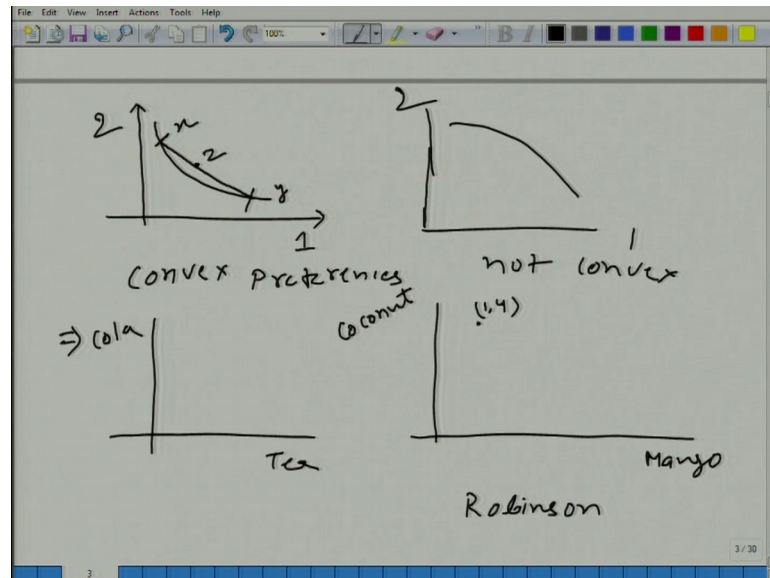 File Edit View Insert Actions Tools Help
100%
B I
2 x
z
y
1
Convex Preferenies
2
1
not convex
⇒ Cola
Tea
Coconut
(1,4)
Mango
Robinson
3 / 30
3